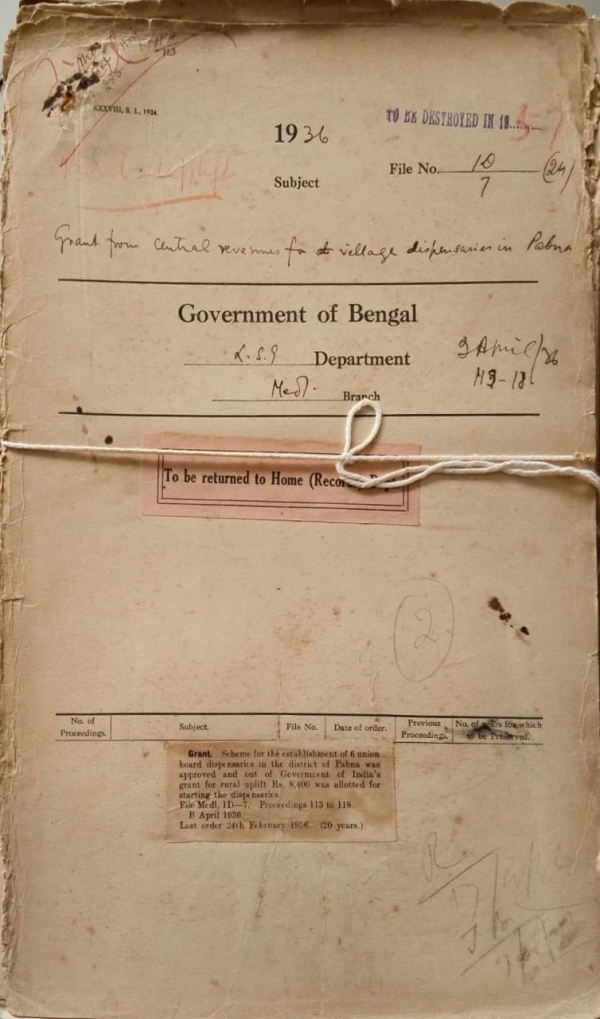 AXXVIII, S. I., 1924.
TO BE DESTROYED IN 19 57
1936
File No. 1D/7 (24)
Subject
Grant from central revenues for village dispensaries in Pabna
Government of Bengal
L.S.G Department
Medl. Branch
April/36
113-118
To be returned to Home (Record
2
No. of Proceedings.
Subject.
File No.
Date of order.
Previous Proceedings.
No. of years for which to be Preserved.
Grant. Scheme for the establishment of 6 union
board dispensaries in the district of Pabna was
approved and out of Government of India's
grant for rural uplift Rs. 8,400 was allotted for
starting the dispensaries.
File Medl. 1D—7. Proceedings 113 to 118.
B April 1936.
Last order 24th February 1936. (20 years.)